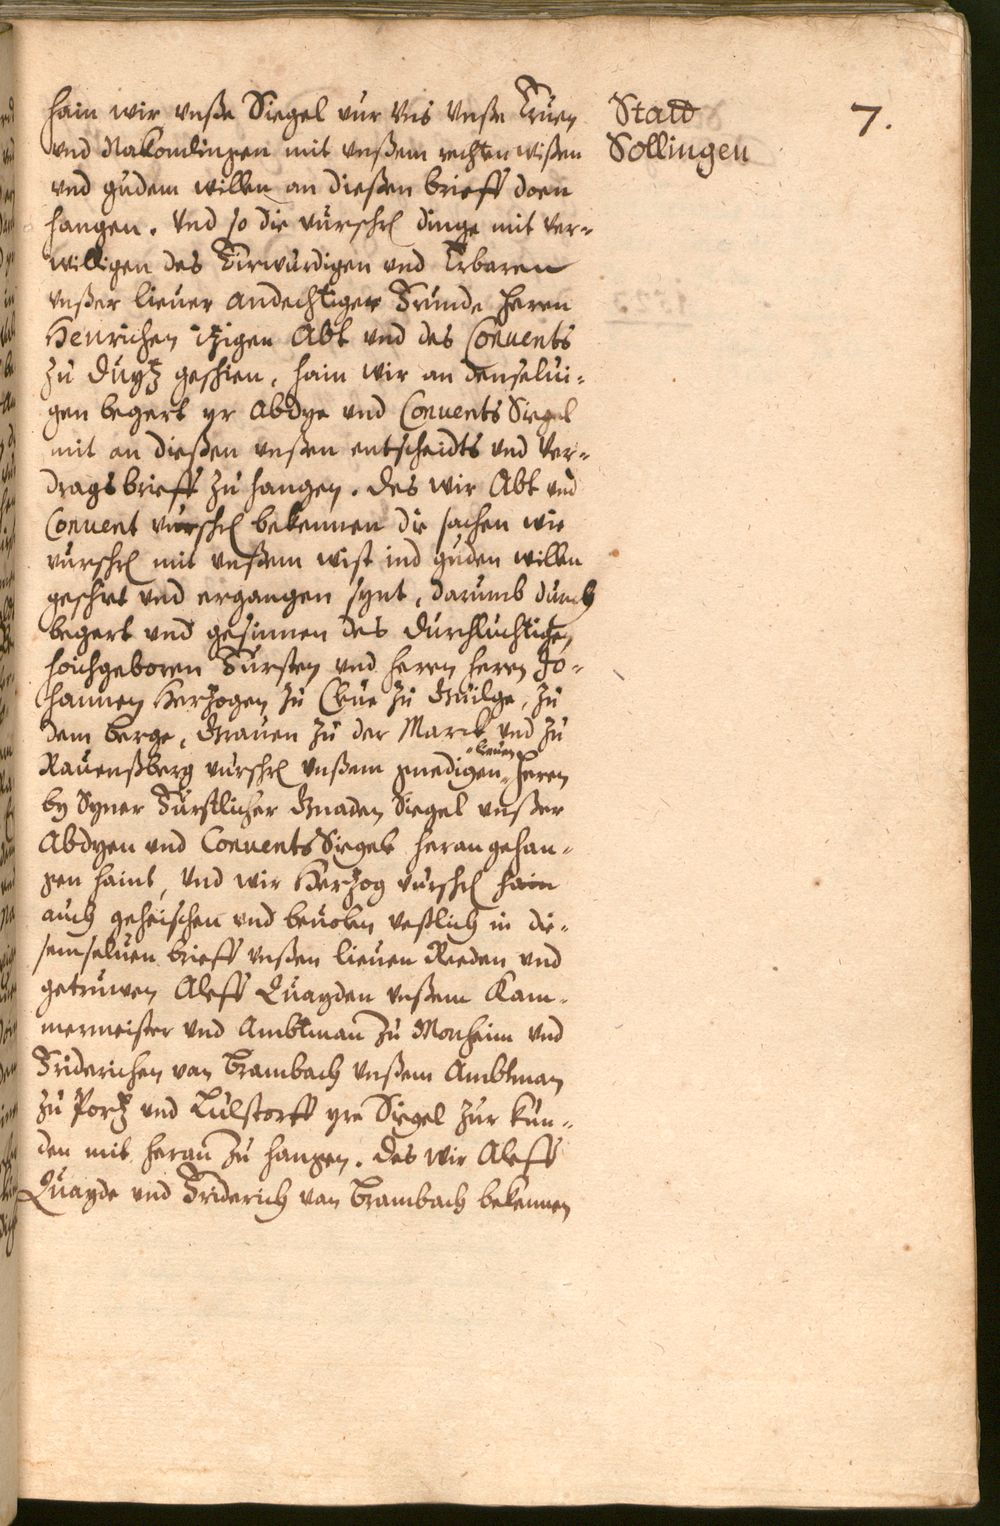 Statt
Sollingen
7.
hain wir vnße Siegel vur Vns Vnße Eruen
vnd Nakomlingen mit vnßem rechten wißen
vnd gudem willen an dießen brieff doen
hangen. Vnd so die vurschr dinge mit ver-
willigen des Eirwurdigen vnd Erbaren
vnßer lieuer andechtiger Frunde herrn
Henrichen itzigen Abt vnd des Conuents
zu Duytz geschien, hain wir an denselui-
gen begert yr Abdye vnd Conuents Siegel
mit an dießen vnßen entscheidts vnd Ver-
dragsbrieff zu hangen. Des wir Abt vnd
Conuent vurschr bekennen die sachen wie
vurschr mit vnßem wist ind guden willen
geschiet vnd ergangen synt, darumb durch
begert vnd gesinnen des Durchluchtigen
hoichgeboren Fursten vnd herrn herrn Jo-
hannen Herzogen zu Cleue zu Guilge, zu
dem Berge, Grauen zu der Marck vnd zu
Rauenßberg vurschr vnßem gnedigen lieuen Herrn
by Syner Furstlicher Gnaden Siegel vnßer
Abdyen vnd Conuents Siegele heran gehan-
gen haint, Vnd wir Herzog vurschr hain
auch geheischen vnd beuolen vestlich in die-
semseluen brieff vnßen lieuen Reeden vnd
getruwen Aleff Quayden vnßem Kam-
mermeister vnd Ambtman zu Monheim vnd
Friderichen van Brambach vnßem Ambtman
zu Portz vnd Lulstorff yre Siegel zur kun-
den mit heran zu hangen. Des wir Aleff
Quayde vnd Friderich van Brambach bekennen